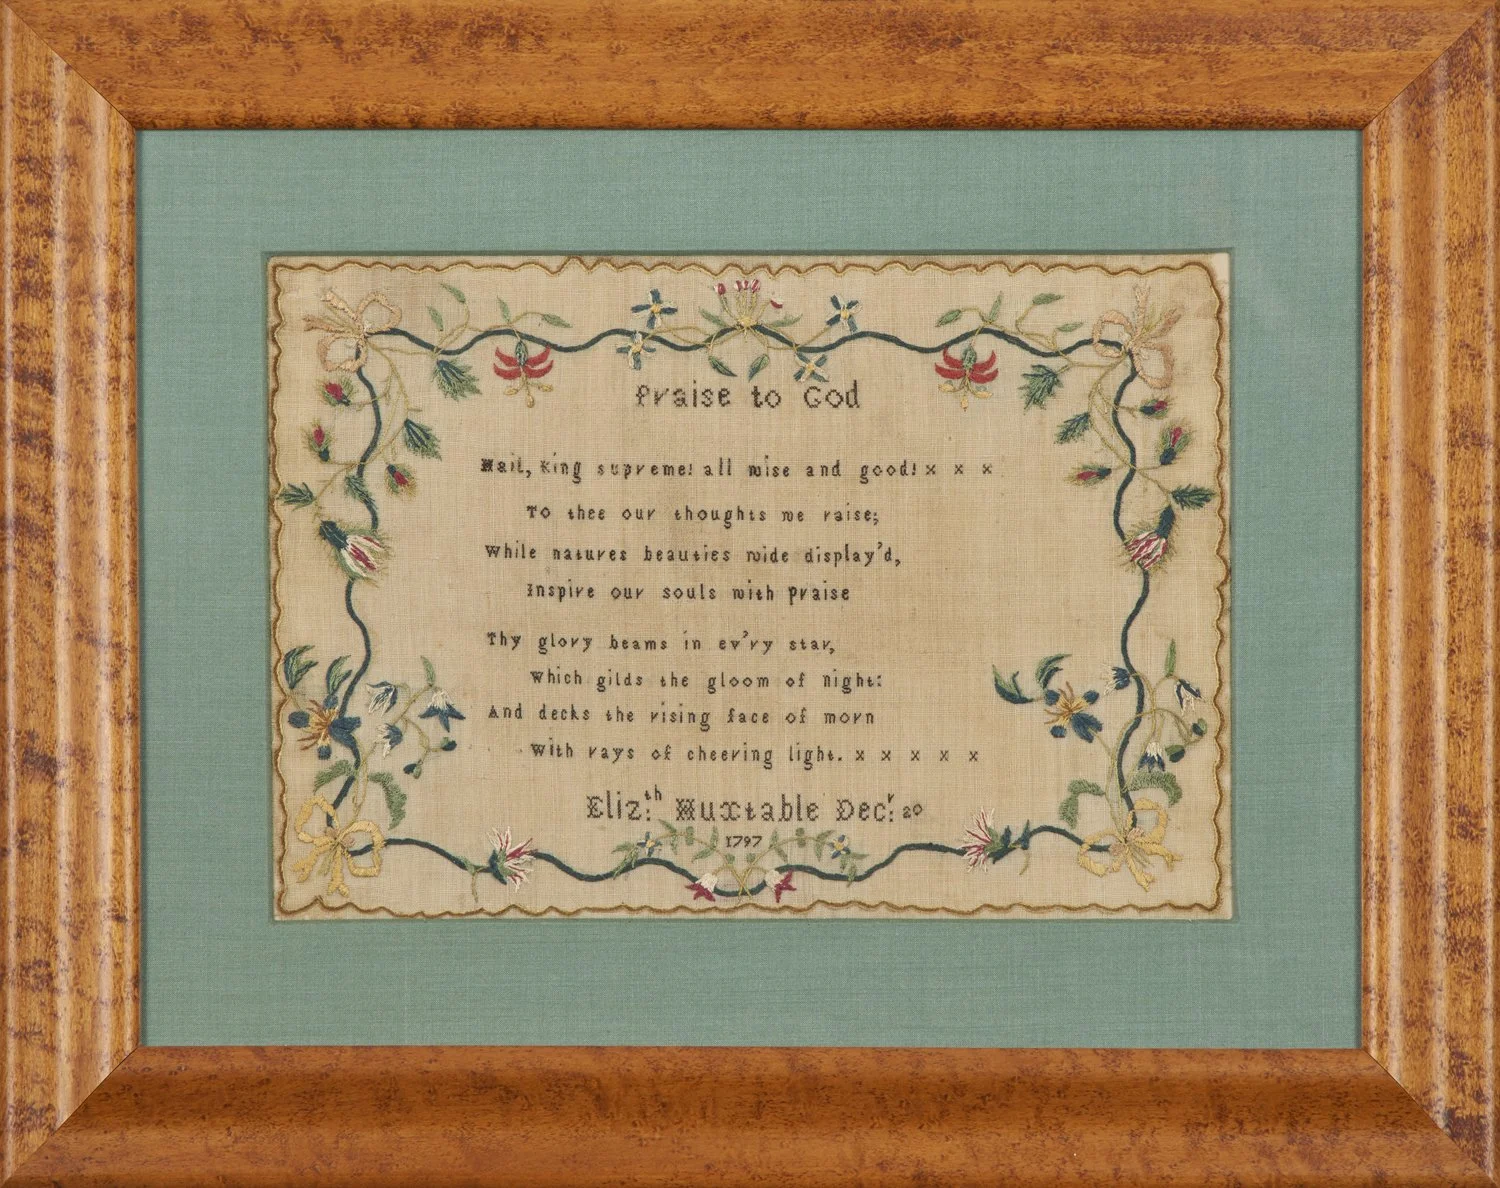 Praise to God
Hail, King supreme! all wise and good! x x x
To thee our thoughts we raise;
While natures beauties wide display'd,
Inspire our souls with praise
Thy glory beams in ev'ry star,
Which gilds the gloom of night:
And decks the rising face of morn
With rays of cheering light. x x x x x
Eliz:th Huxtable Dec:r 20
1797